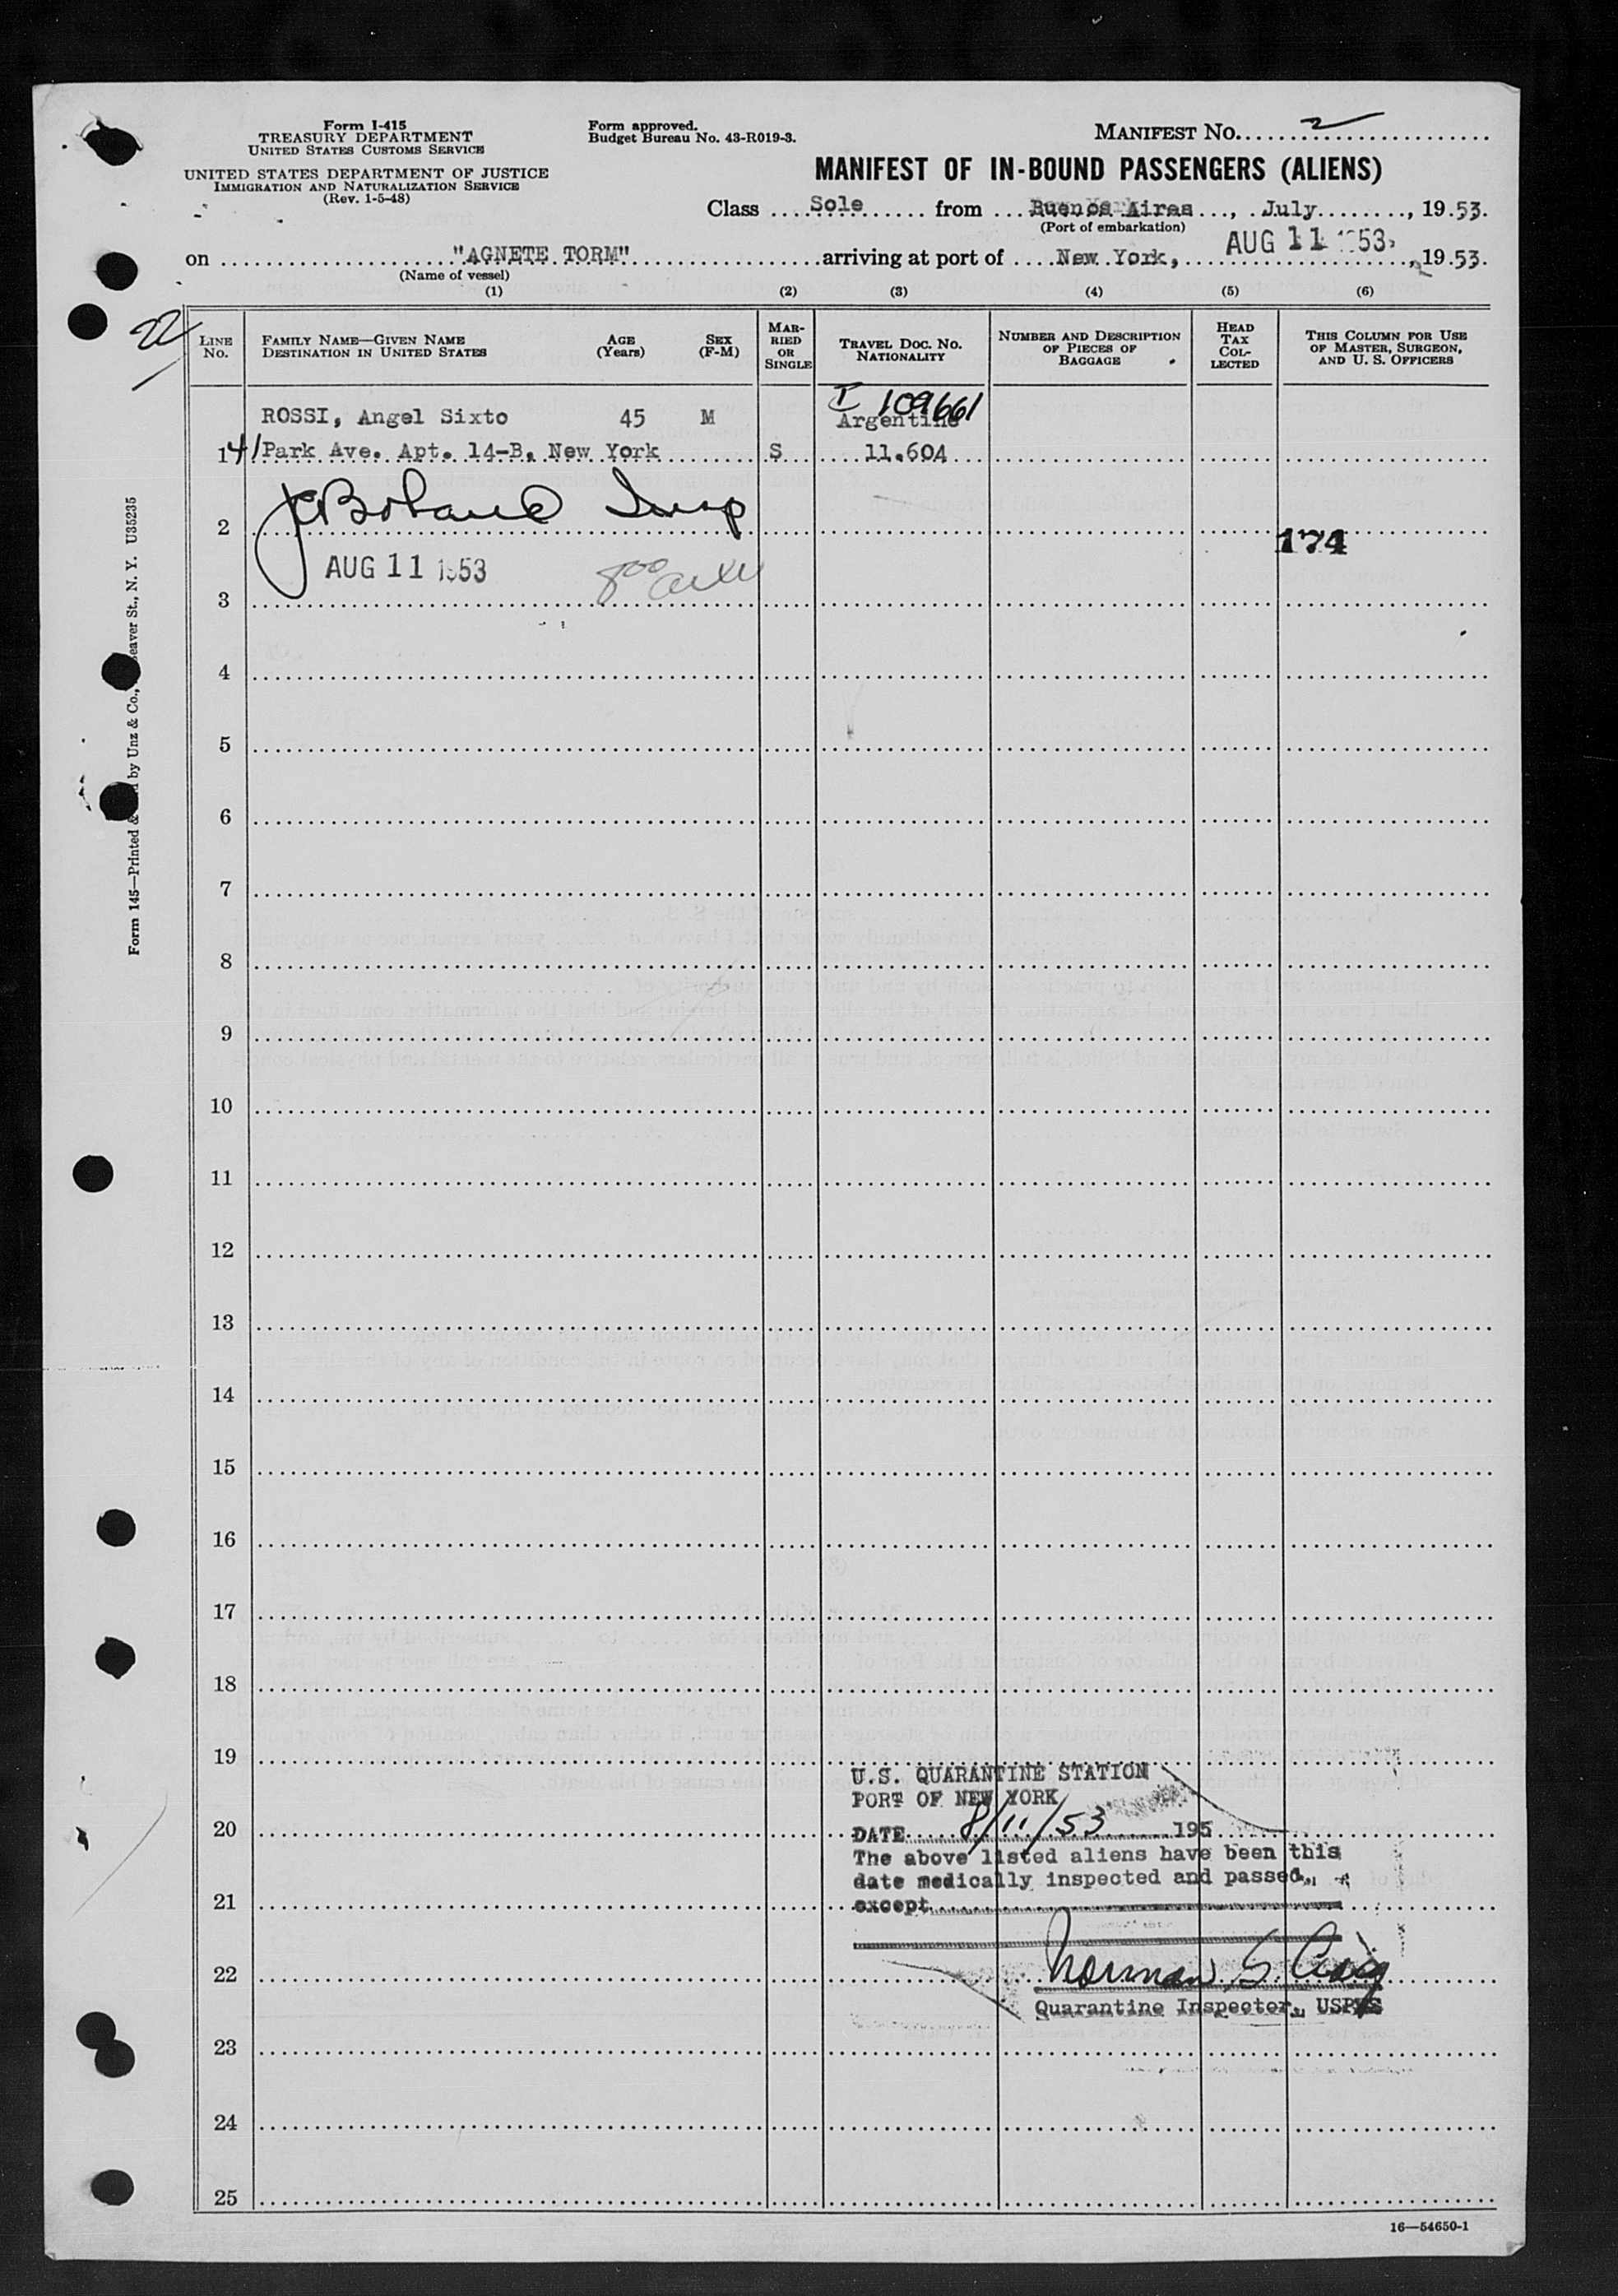 Form I-415
TREASURY DEPARTMENT
UNITED STATES CUSTOMS SERVICE
UNITED STATES DEPARTMENT OF JUSTICE
IMMIGRATION AND NATURALIZATION SERVICE
(Rev. 1-5-48)
Form approved.
Budget Bureau No. 43-R019-3.
MANIFEST NO. 2
MANIFEST OF IN-BOUND PASSENGERS (ALIENS)
Class Sole from Buenos Aires, July, 1953.
(Port of embarkation)
AUG 11 1953
on "AGNETE TORM" arriving at port of New York, , 1953.
(Name of vessel)
(1) (2) (3) (4) (5) (6)
22
LINE No.
FAMILY NAME—GIVEN NAME
DESTINATION IN UNITED STATES
AGE (Years)
SEX (F-M)
MARRIED OR SINGLE
TRAVEL DOC. NO.
NATIONALITY
NUMBER AND DESCRIPTION OF PIECES OF BAGGAGE
HEAD TAX COLLECTED
THIS COLUMN FOR USE OF MASTER, SURGEON, AND U. S. OFFICERS
I 109661
ROSSI, Angel Sixto 45 M Argentine
1 41 Park Ave. Apt. 14-B, New York S 11.604
Insp
2
174
AUG 11 1953
3
4
5
6
7
8
9
10
11
12
13
14
15
16
17
18
19
U.S. QUARANTINE STATION
PORT OF NEW YORK
20
DATE 8/11/53 195
The above listed aliens have been this
date medically inspected and passed,
21
except
22
Norman S. Craig
Quarantine Inspector, USPHS
23
24
25
16—54650-1
Form 145—Printed & by Unz & Co., Beaver St., N. Y. U35235